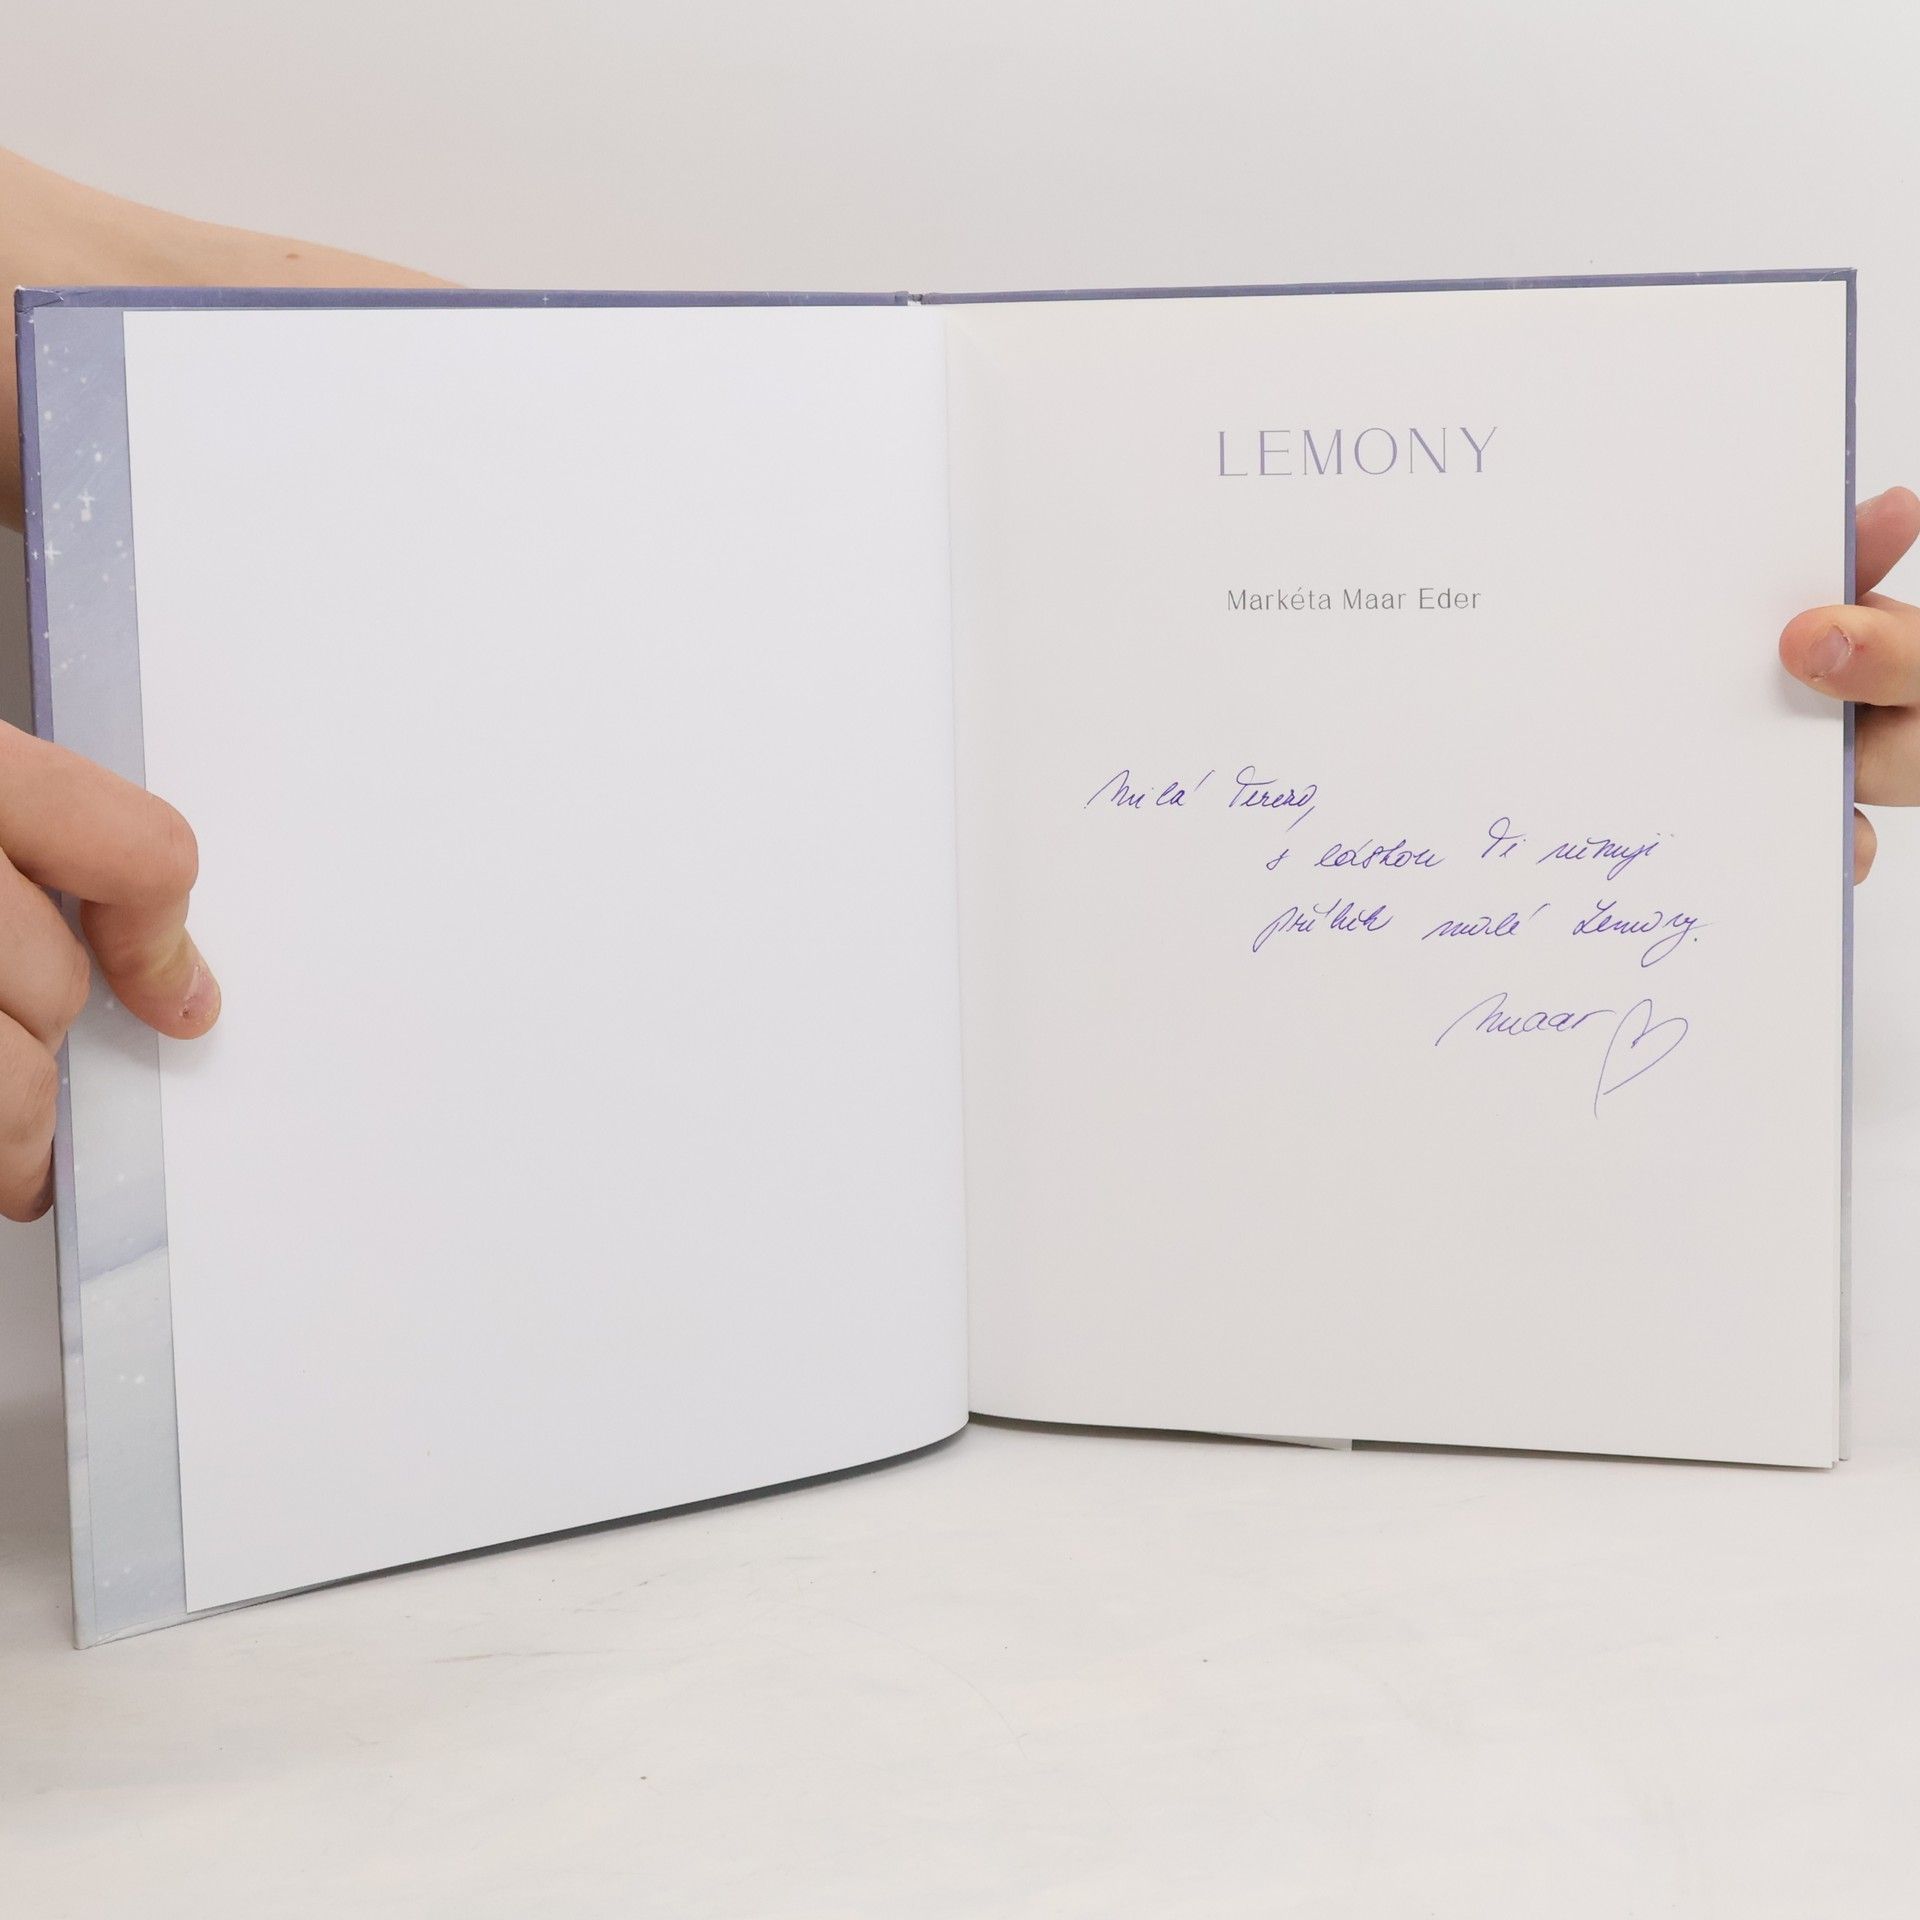 LEMONY
Markéta Maar Eder
Milá Terezo,
s láskou Ti věnuji
příběh malé Lemony.
Maar